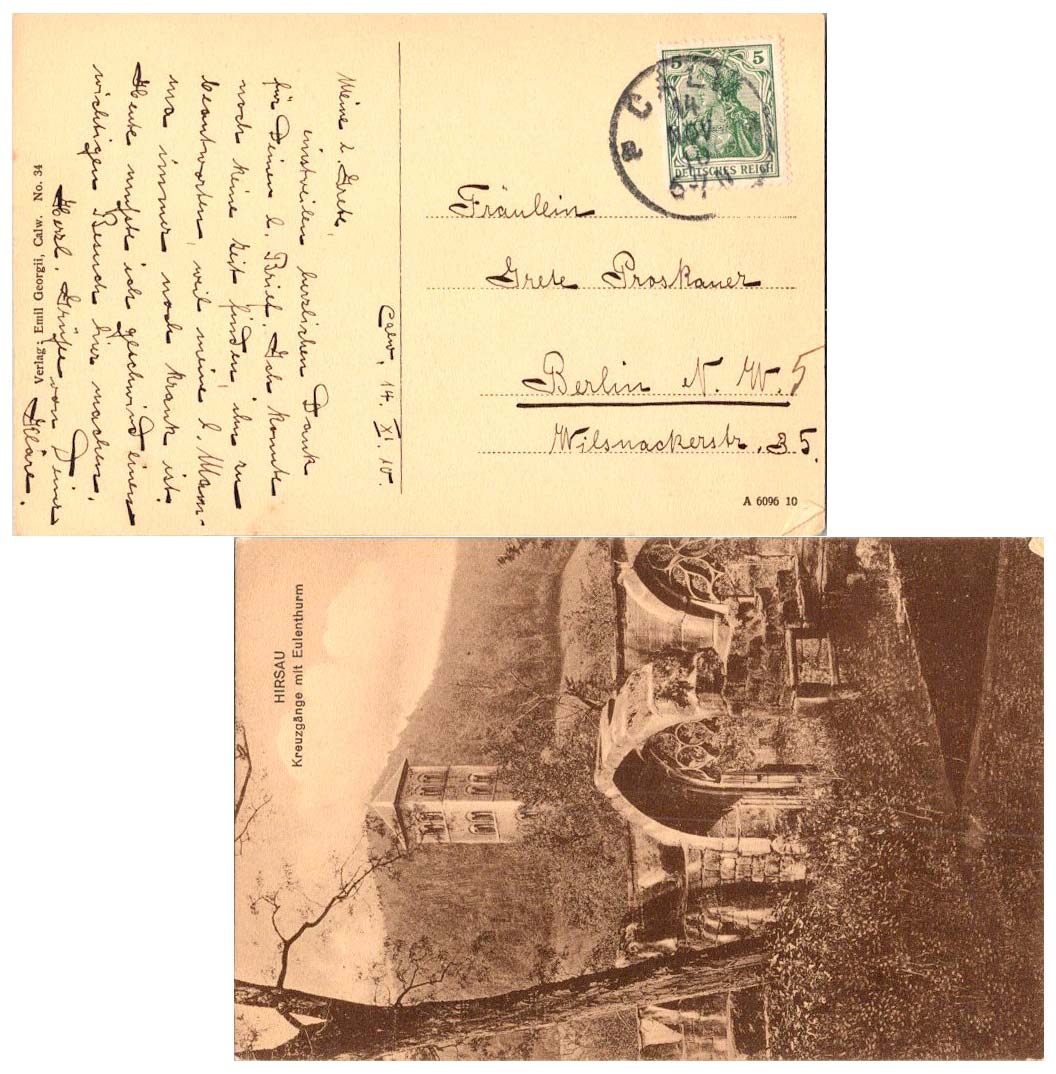 Meine l. Grete,
einstweilen herzlichen Dank
für Deinen l. Brief. Ich konnte
noch keine Zeit finden, ihn zu
beantworten, weil meine l. Mam-
ma immer noch krank ist.
Heute mußte ich geschwind einen
wichtigen Besuch hier machen.
Herzl. Grüße von Deiner
Kläre.
Calw, 14. XI. 10.
Verlag: Emil Georgii, Calw. No. 34
5 5
DEUTSCHES REICH
CALW
14
NOV
10
6-7 N
Fräulein
Grete Proskauer
Berlin N. W. 5
Wilsnackerstr. 35.
A 6096 10
HIRSAU
Kreuzgänge mit Eulenthurm